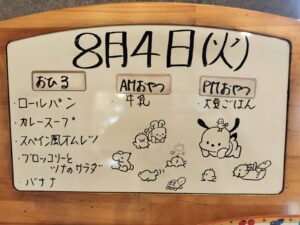 8月4日(火)
おひる
・ロールパン
・カレースープ
・スペイン風オムレツ
・ブロッコリーと
ツナのサラダ
・バナナ
AMおやつ
・牛乳
PMおやつ
・大豆ごはん